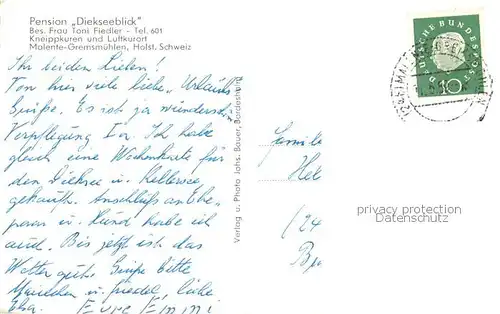 Pension „Diekseeblick"
Bes. Frau Toni Fiedler - Tel. 601
Kneippkuren und Luftkurort
Malente-Gremsmühlen, Holst. Schweiz
Ihr beiden Lieben!
Von hier viele liebe Urlaubs
Grüße. Es ist ja wunderschön
Verpflegung Ia. Ich habe
gleich eine Wochenkarte für
den Dieksee u. Kellersee
gekauft. Anschluß an Ehe-
paar u. Hund habe ich
auch. Bis jetzt ist das
Wetter gut. Grüße bitte
u. liebe
Eure Emmi
Verlag u. Photo Johs. Bauer, Bordesholm
DEUTSCHE BUNDESPOST
10
Familie
(24
privacy protection
Datenschutz